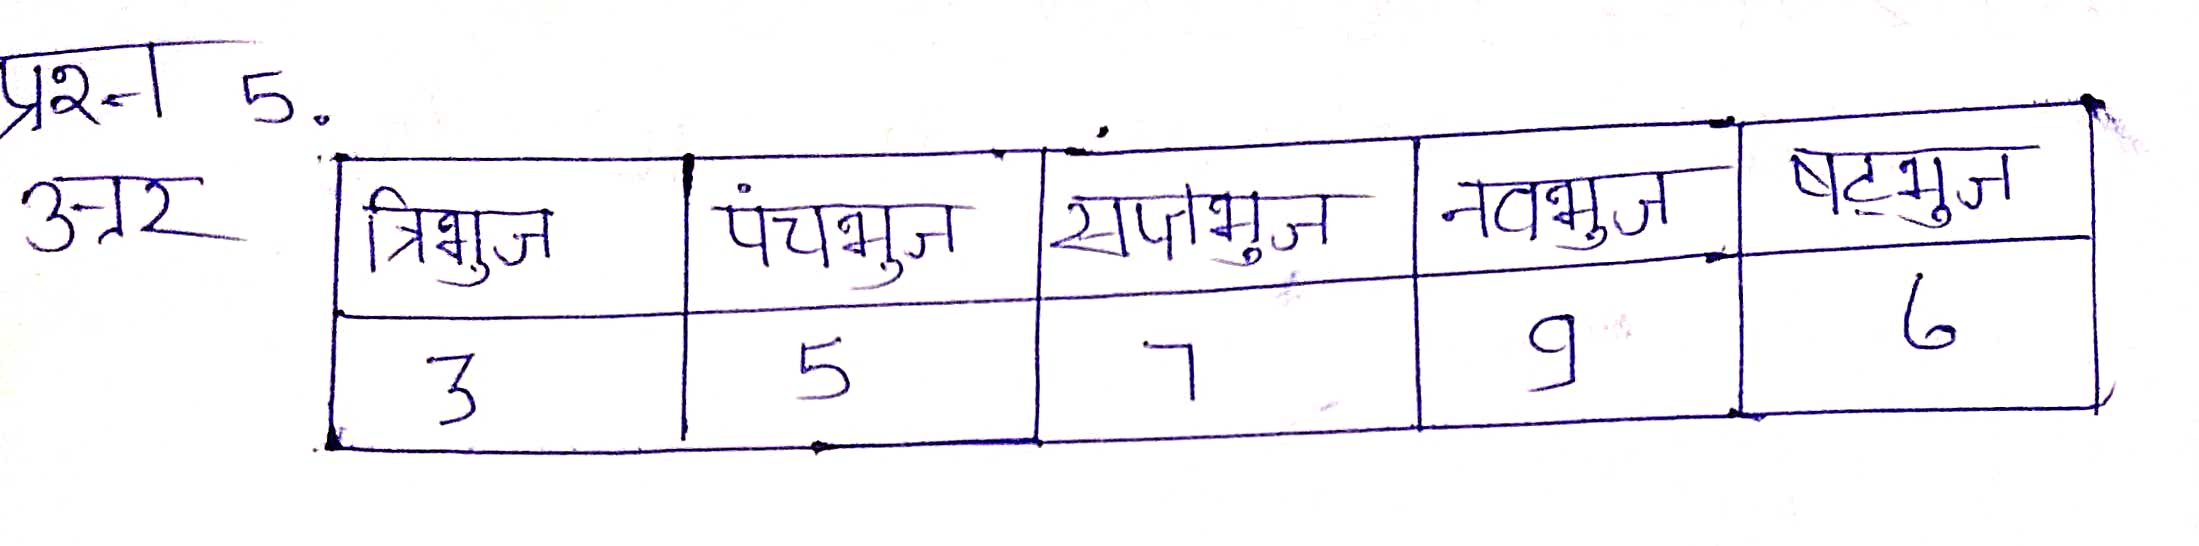 प्रश्न 5.
उत्तर
त्रिभुज पंचभुज सप्तभुज नवभुज षट्भुज
3 5 7 9 6